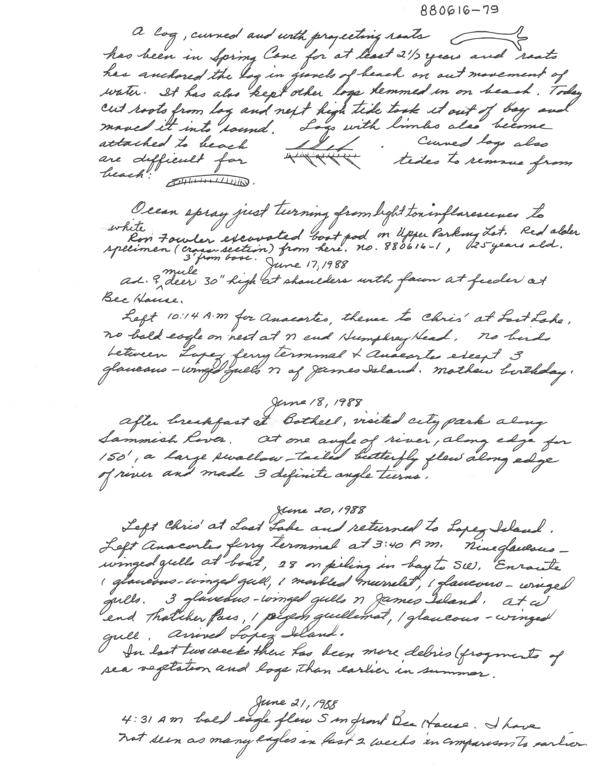 880616-79
A log, curved and with projecting roots
has been in Spring Cove for at least 2 1/2 years and roots
has anchored the log in gravels of beach on out movement of
water. It has also kept other logs hemmed in on beach. Today
cut roots from log and next high tide took it out of bay and
moved it into sound. Logs with limbs also become
attached to beach . Curved logs also
are difficult for tides to remove from
beach:
Ocean spray just turning from light to inflorescences to
white
Ron Fowler excavated boat pad on Upper Parking Lot. Red alder
specimen (cross section) from here. No. 880616-1, 25 years old.
3' from base.
June 17, 1988
Ad. ♀ mule deer 30" high at shoulders with fawn at feeder at
Bee House.
Left 10:14 A.M for Anacortes, thence to Chris' at Lost Lake.
No bald eagle on nest at N end Humphrey Head. No birds
between Lopez ferry terminal & Anacortes except 3
glaucous-winged gulls N of James Island. Mothers birthday.
June 18, 1988
After breakfast at Bothell, visited city park along
Sammish River. At one angle of river, along edge for
150', a large swallow-tailed butterfly flew along edge
of river and made 3 definite angle turns.
June 20, 1988
Left Chris' at Lost Lake and returned to Lopez Island.
Left Anacortes ferry terminal at 3:40 P.M. Nine glaucous-
winged gulls at boat, 28 on piling in bay to SW. Enroute
1 glaucous-winged gull, 1 marbled murrelet, 1 glaucous-winged
gulls. 3 glaucous-winged gulls N James Island. At W
end Thatcher Pass, 1 pigeon guillemot, 1 glaucous-winged
gull. Arrived Lopez Island.
In last two weeks there has been more debris (fragments of
sea vegetation and logs than earlier in summer.
June 21, 1988
4:31 AM bald eagle flew S in front Bee House. I have
not seen as many eagles in last 2 weeks in comparison to earlier